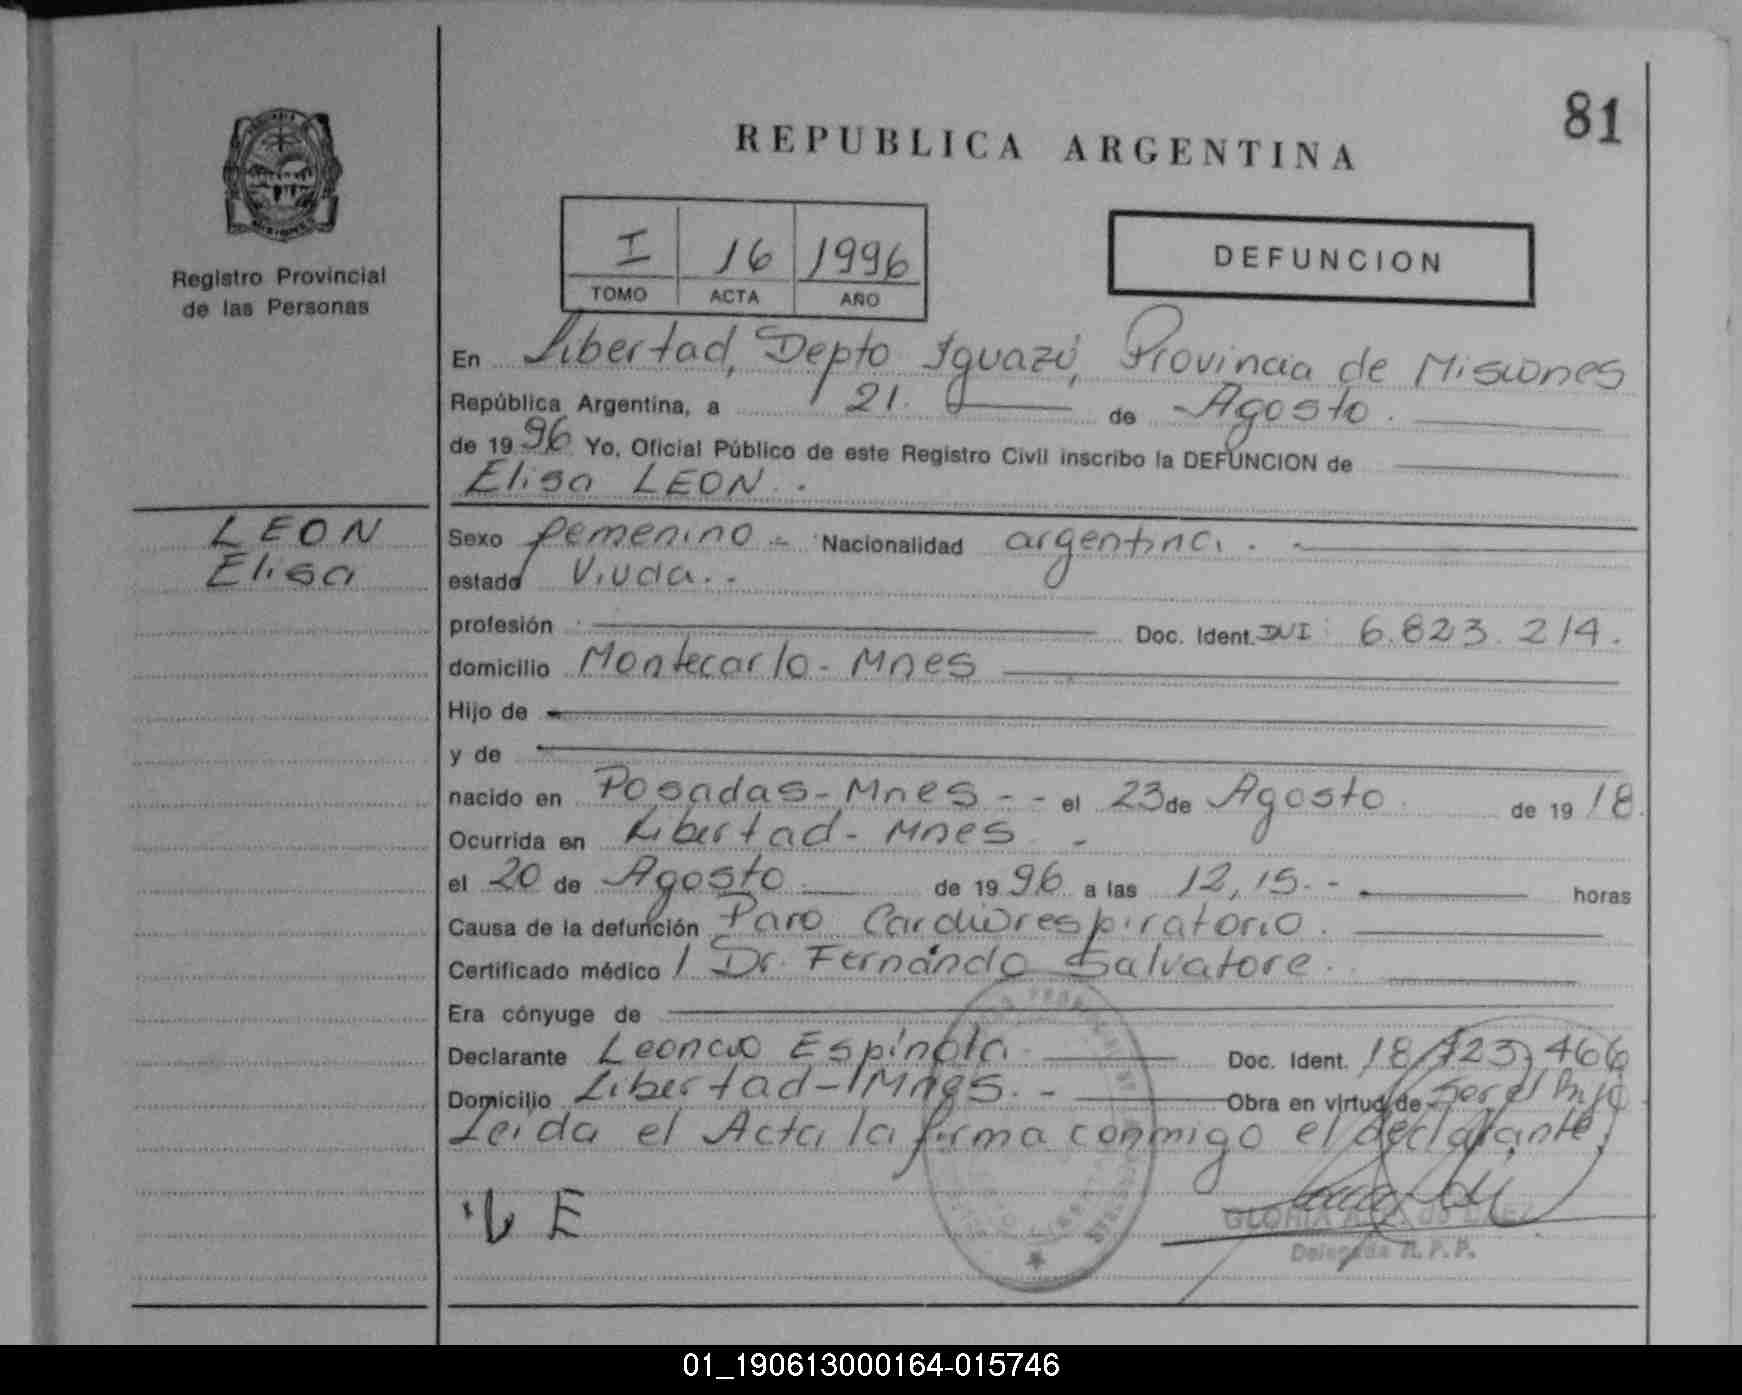 81
REPUBLICA ARGENTINA
I 16 1996
TOMO ACTA AÑO
DEFUNCION
Registro Provincial
de las Personas
En Libertad, Depto Iguazú, Provincia de Misiones
República Argentina, a 21. de Agosto.
de 1996 Yo, Oficial Público de este Registro Civil inscribo la DEFUNCION de
Elisa LEON.
LEON
Elisa
Sexo femenino - Nacionalidad argentina. -
estado Viuda. -
profesión Doc. Ident. DNI 6.823.214.
domicilio Montecarlo - Mnes
Hijo de
y de
nacido en Posadas - Mnes - - el 23 de Agosto de 1918.
Ocurrida en Libertad - Mnes -
el 20 de Agosto de 1996 a las 12,15. - horas
Causa de la defunción Paro Cardiorespiratorio.
Certificado médico Dr. Fernando Salvatore.
Era cónyuge de
Declarante Leoncio Espínola Doc. Ident. 18,723,466
Domicilio Libertad - Mnes. - Obra en virtud de Ser el hijo
Leída el Acta la firma conmigo el declarante.
L E
GLORIA
Delegada R.P.P.
01_190613000164-015746